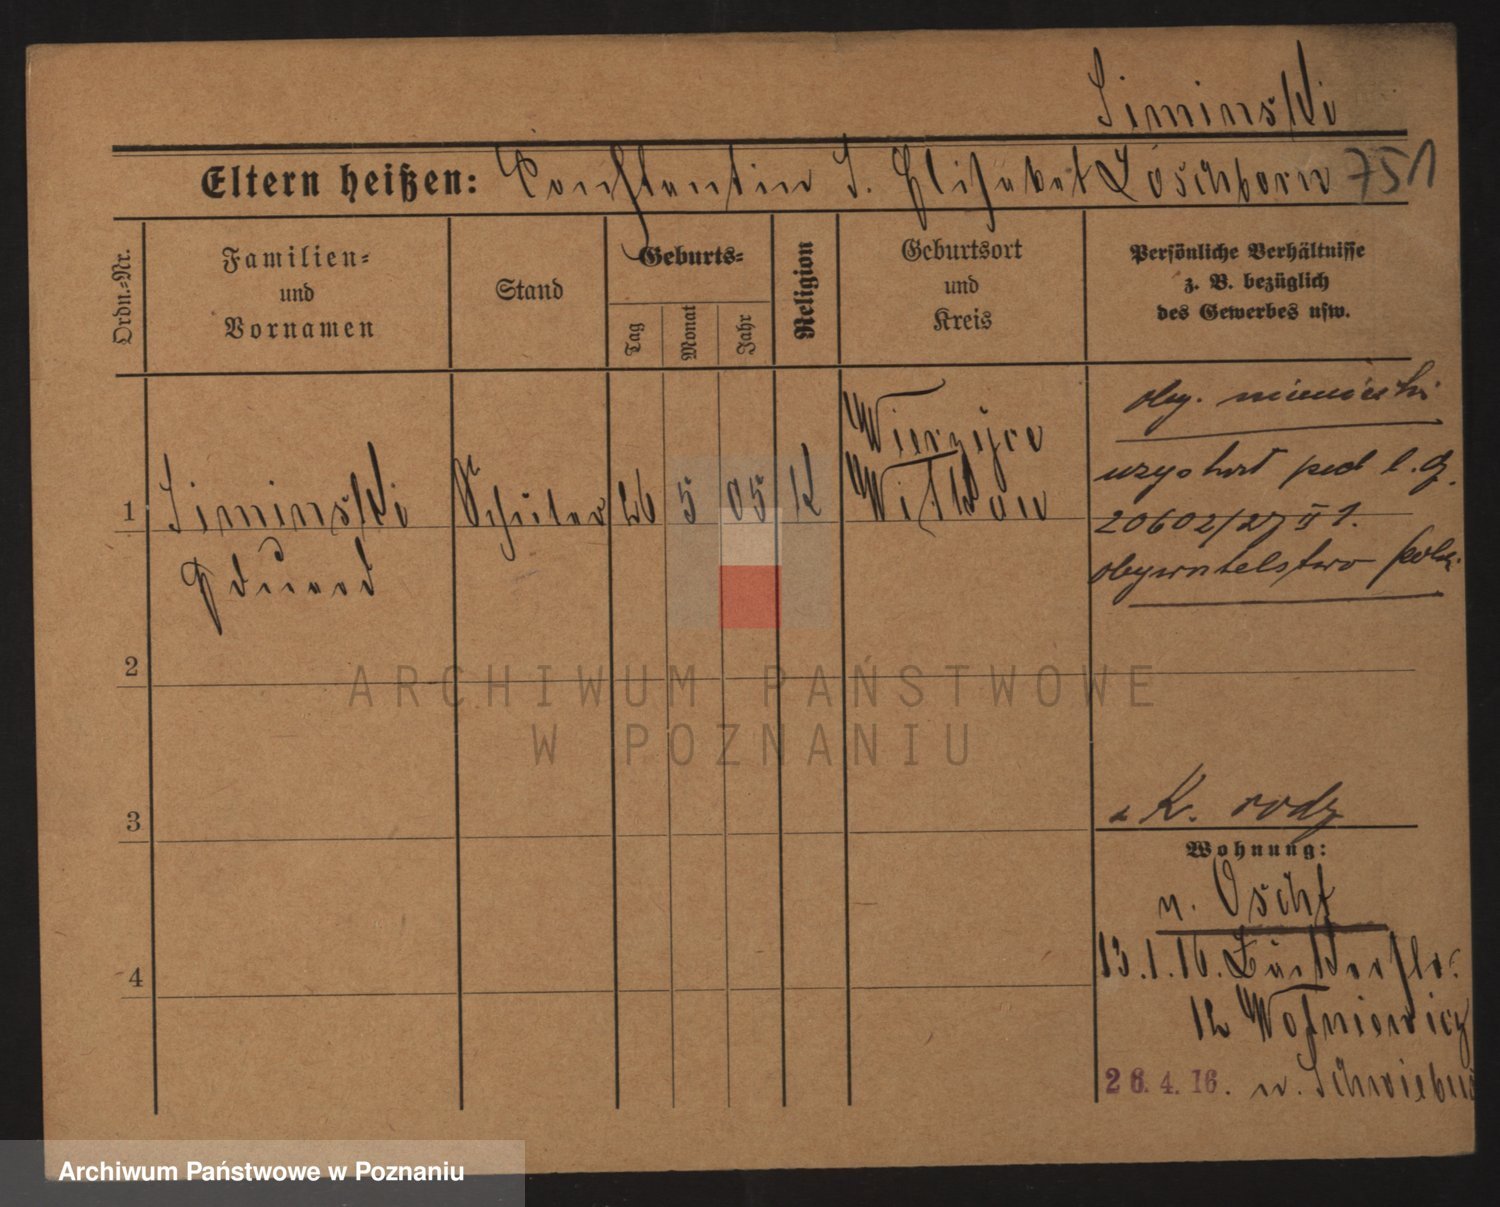 Siminski
Eltern heißen: Constantin S. Elisabet Löschborn 751
Ordn.-Nr.
Familien-
und
Vornamen
Stand
Geburts-
Tag
Monat
Jahr
Religion
Geburtsort
und
Kreis
Persönliche Verhältnisse
z. B. bezüglich
des Gewerbes usw.
1
Siminski
Eduard
Schüler
26
5
05
K
Wierzyce
Witkow
oby. niemiecki
uzyskał pod l. g.
20602/27 II 1.
obywatelstwo polsk.
2
3
4
K. rodz
Wohnung:
n. Oscht
13.1.16. Bäckerstr.
12 Woźniewicz
26.4.16. n. Schwiebus
ARCHIWUM PAŃSTWOWE
W POZNANIU
Archiwum Państwowe w Poznaniu